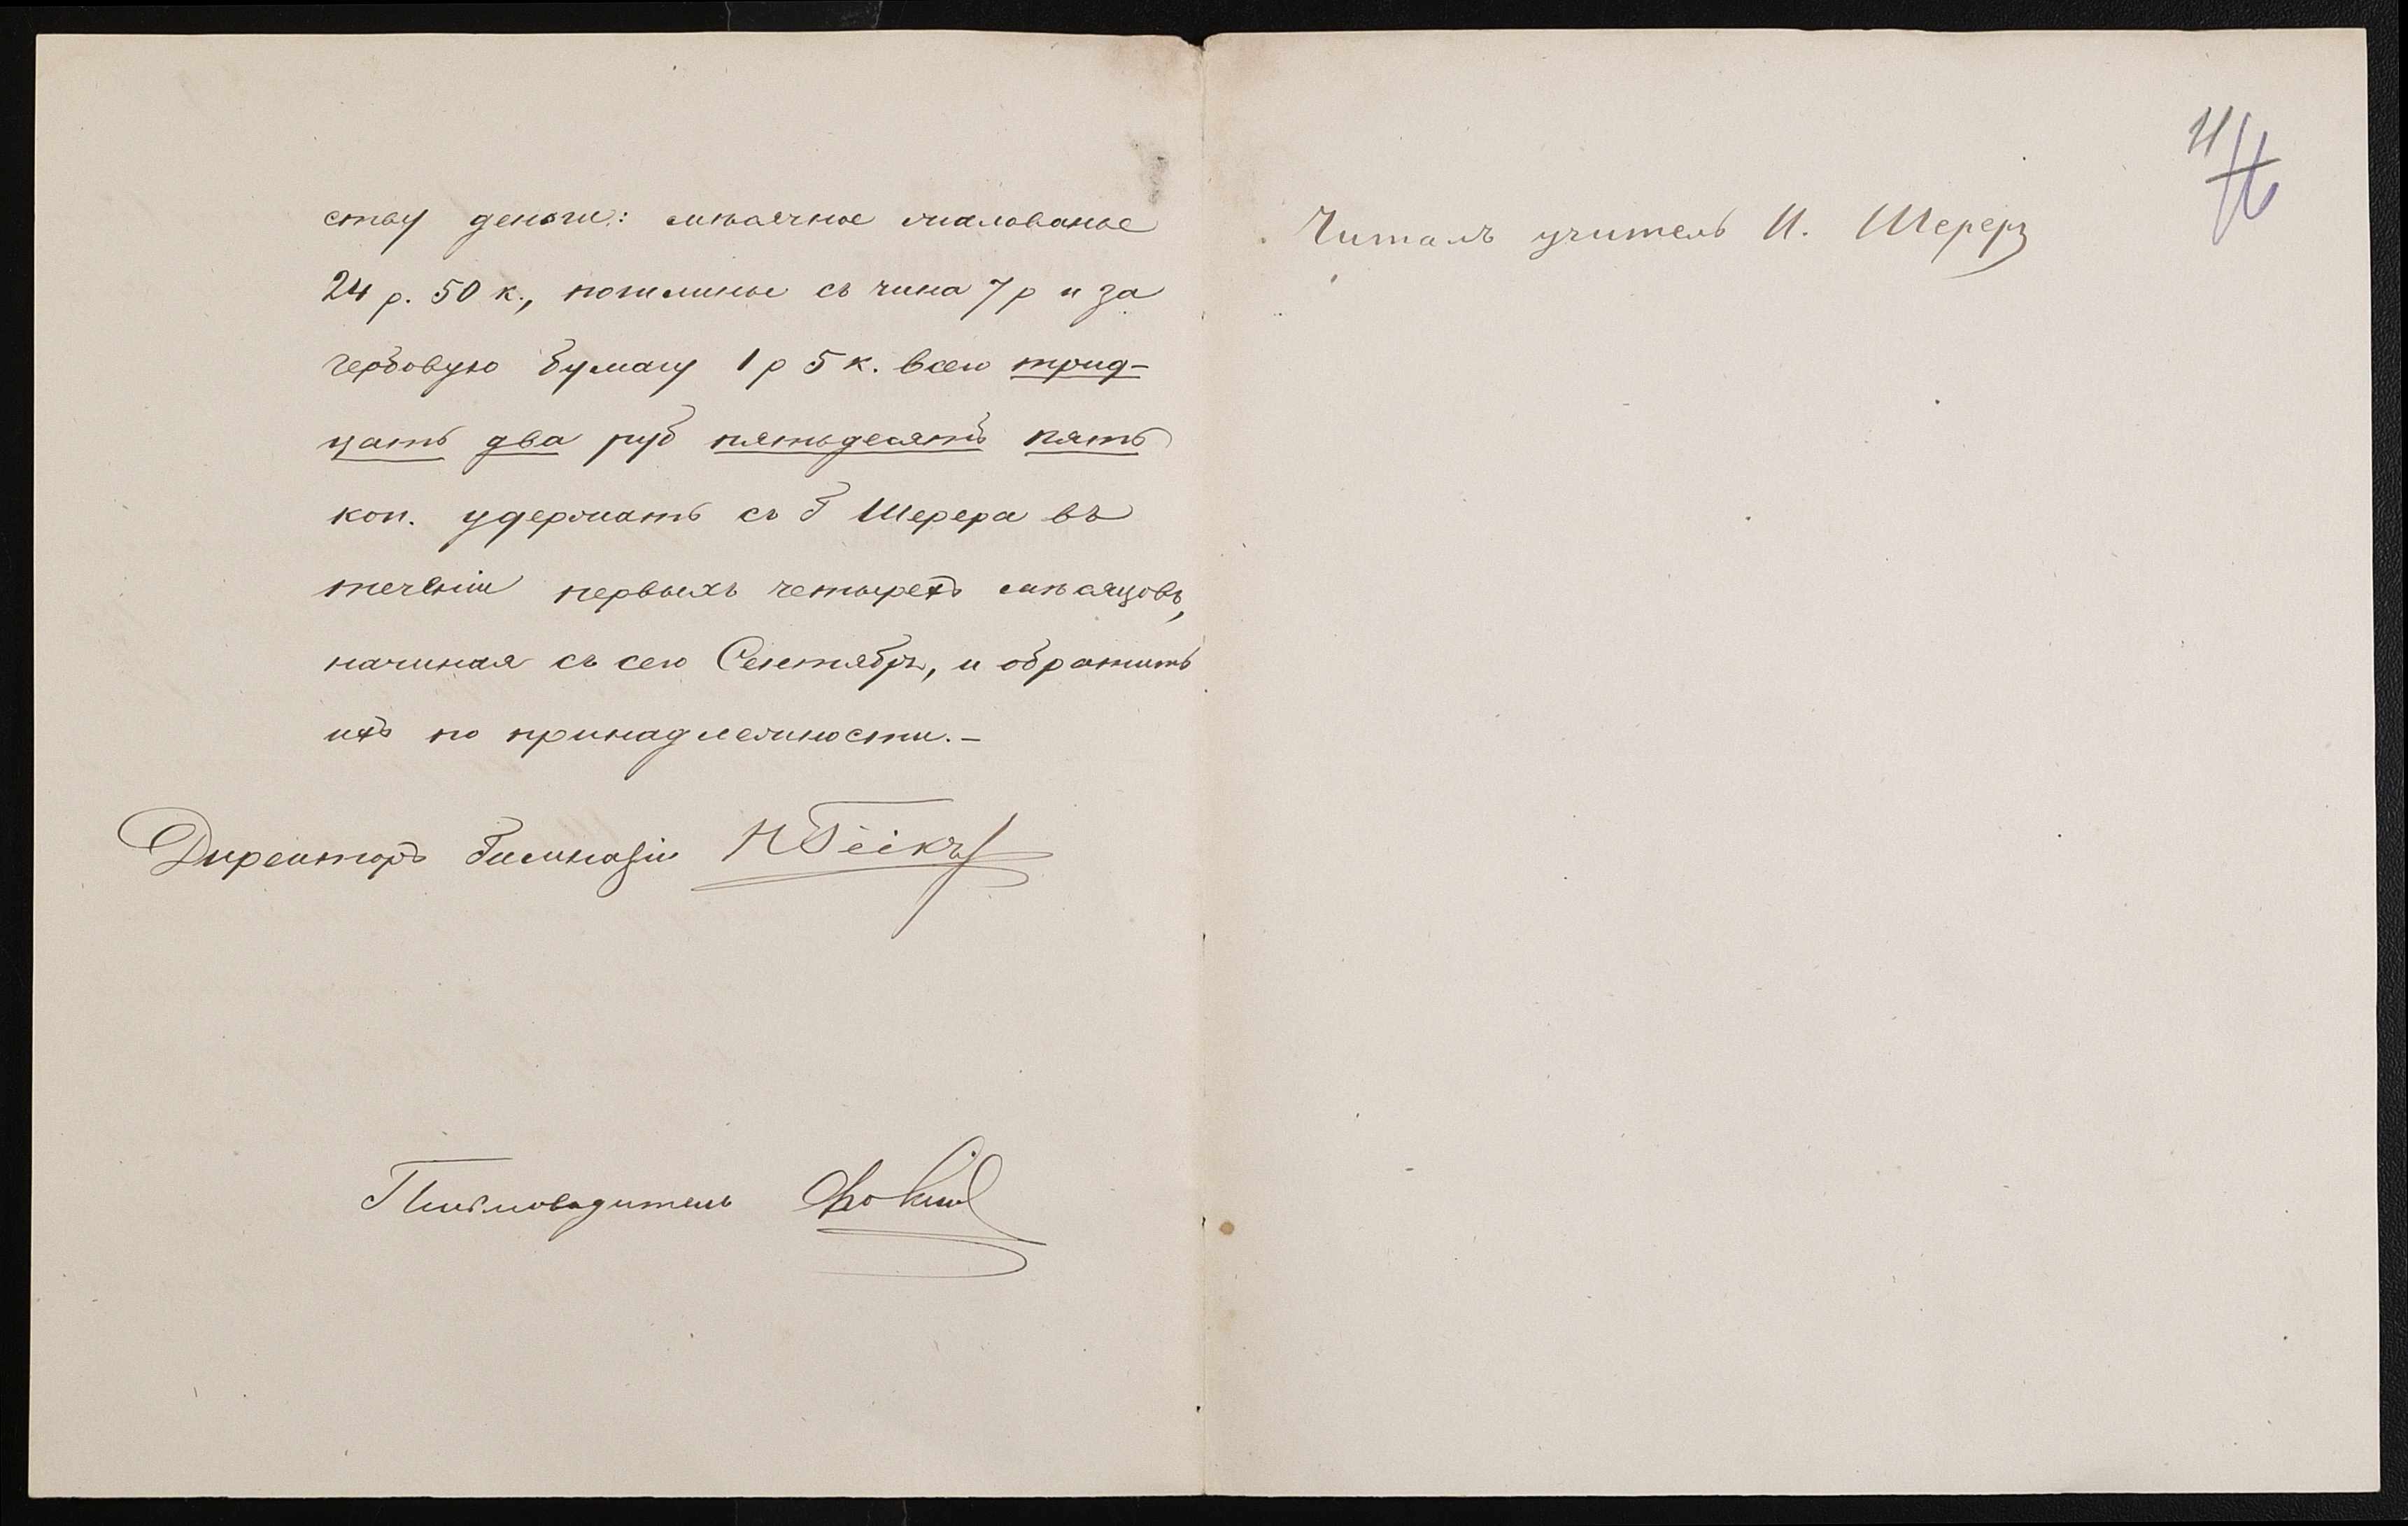 ству деньги: мѣсячное жалованье
24 р. 50 к., пошлины съ чина 7 р и за
гербовую бумагу 1 р 5 к. всего трид-
цать два руб пятьдесятъ пять
коп. удержать съ Г Шерера въ
теченіи первыхъ четырехъ мѣсяцовъ,
начиная съ сего Сентября, и обратить
ихъ по принадлежности.-
Директоръ Гимназіи
Письмоводитель
Читалъ учитель И. Шереръ
11